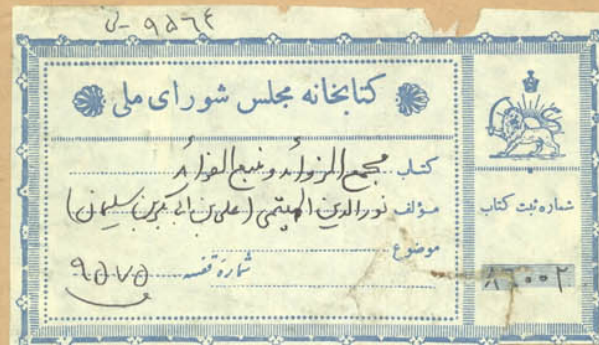 ۹۵۶۴ - ف
کتابخانه مجلس شورای ملی
کتاب مجمع الزوائد و منبع الفوائد
مؤلف نورالدین الهیثمی (علی بن ابی بکر بن سلیمان)
موضوع
شمارهٔ قفسه ۹۵۷۵
شماره ثبت کتاب
۸۶۰۰۲